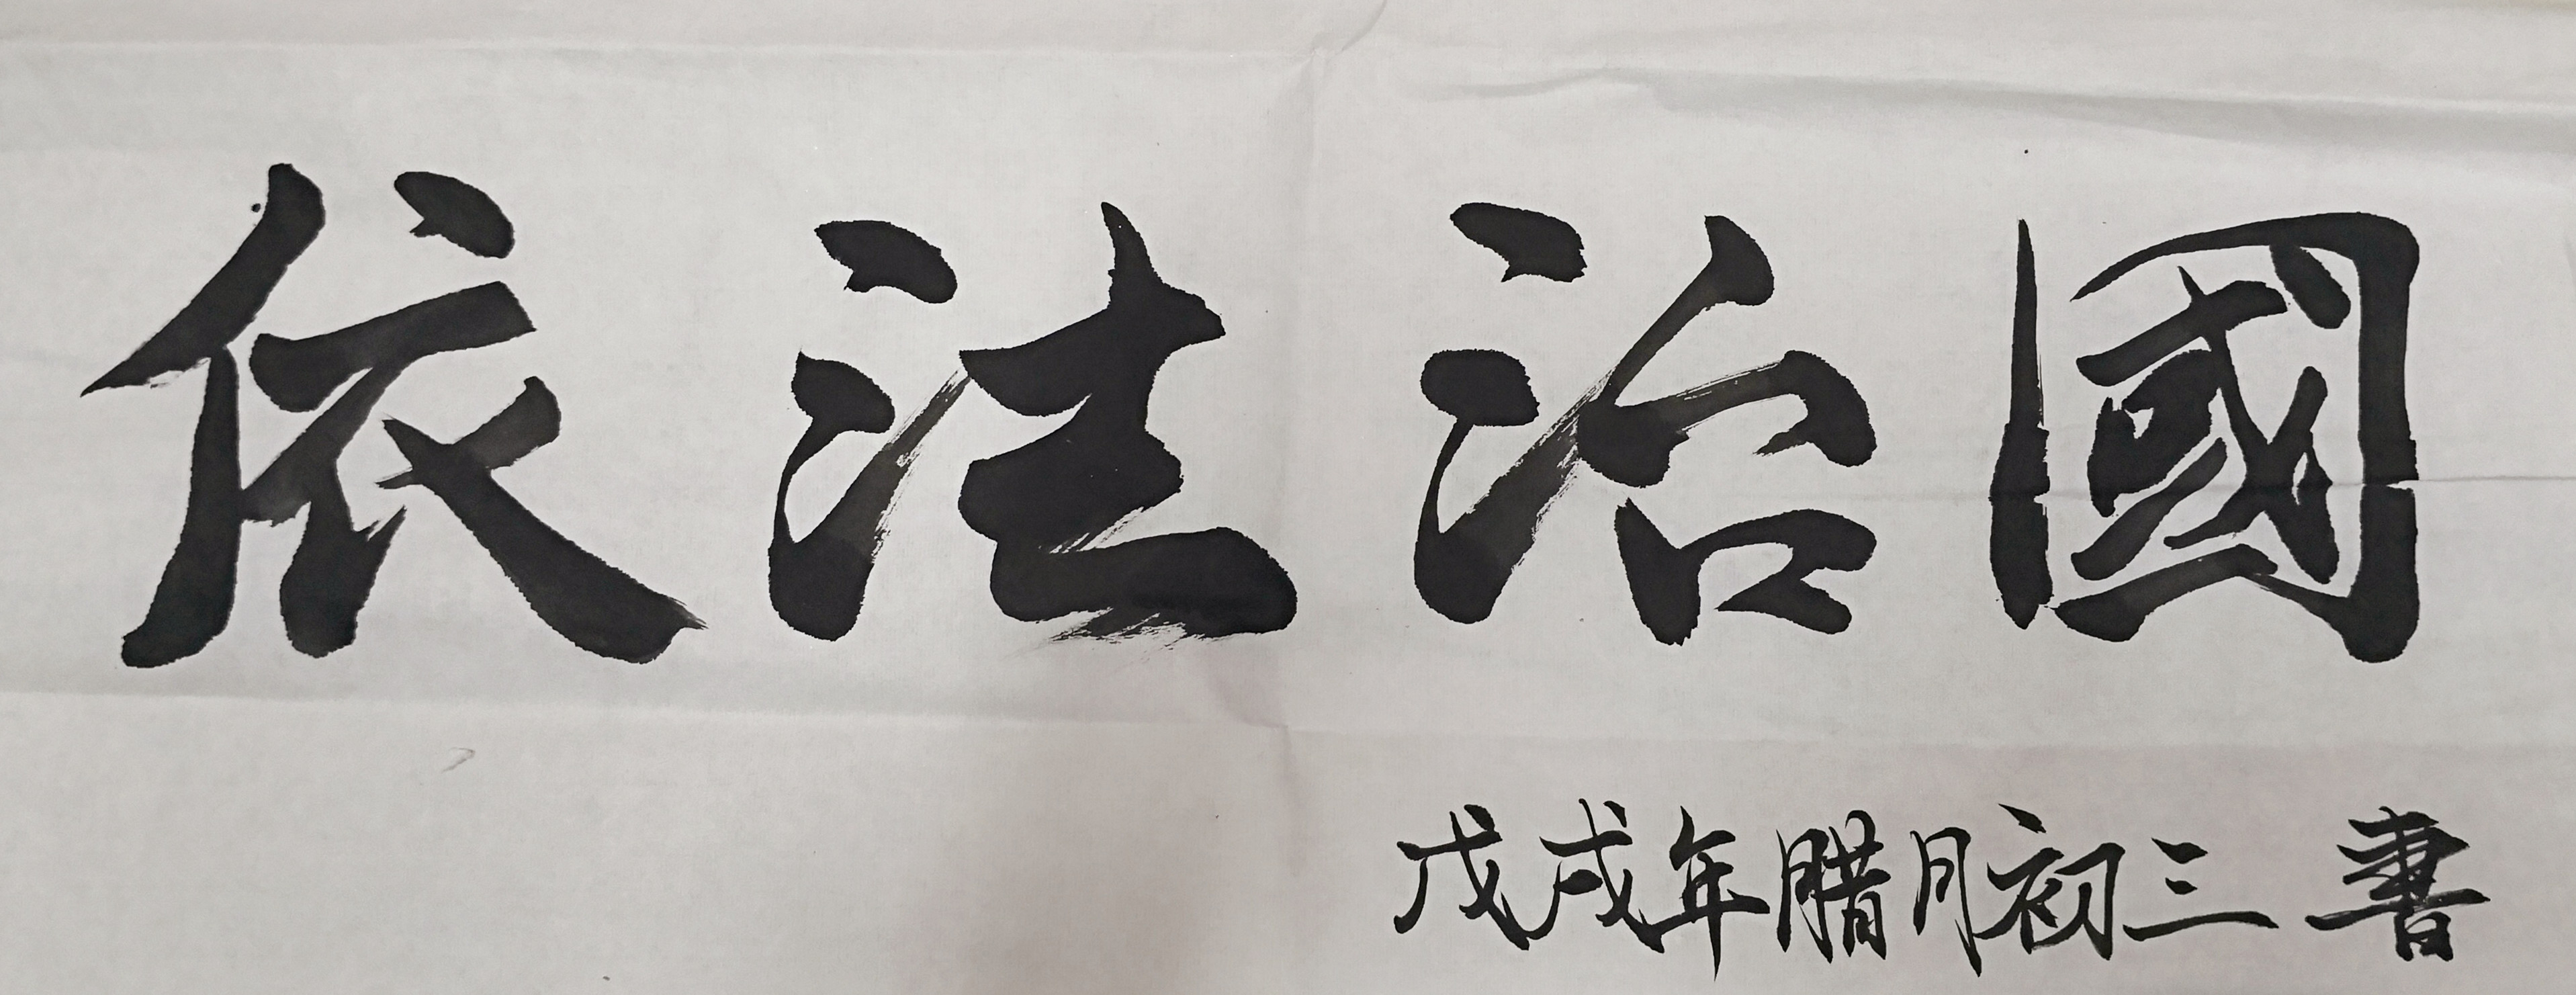 依法治國
戊戌年腊月初三 書